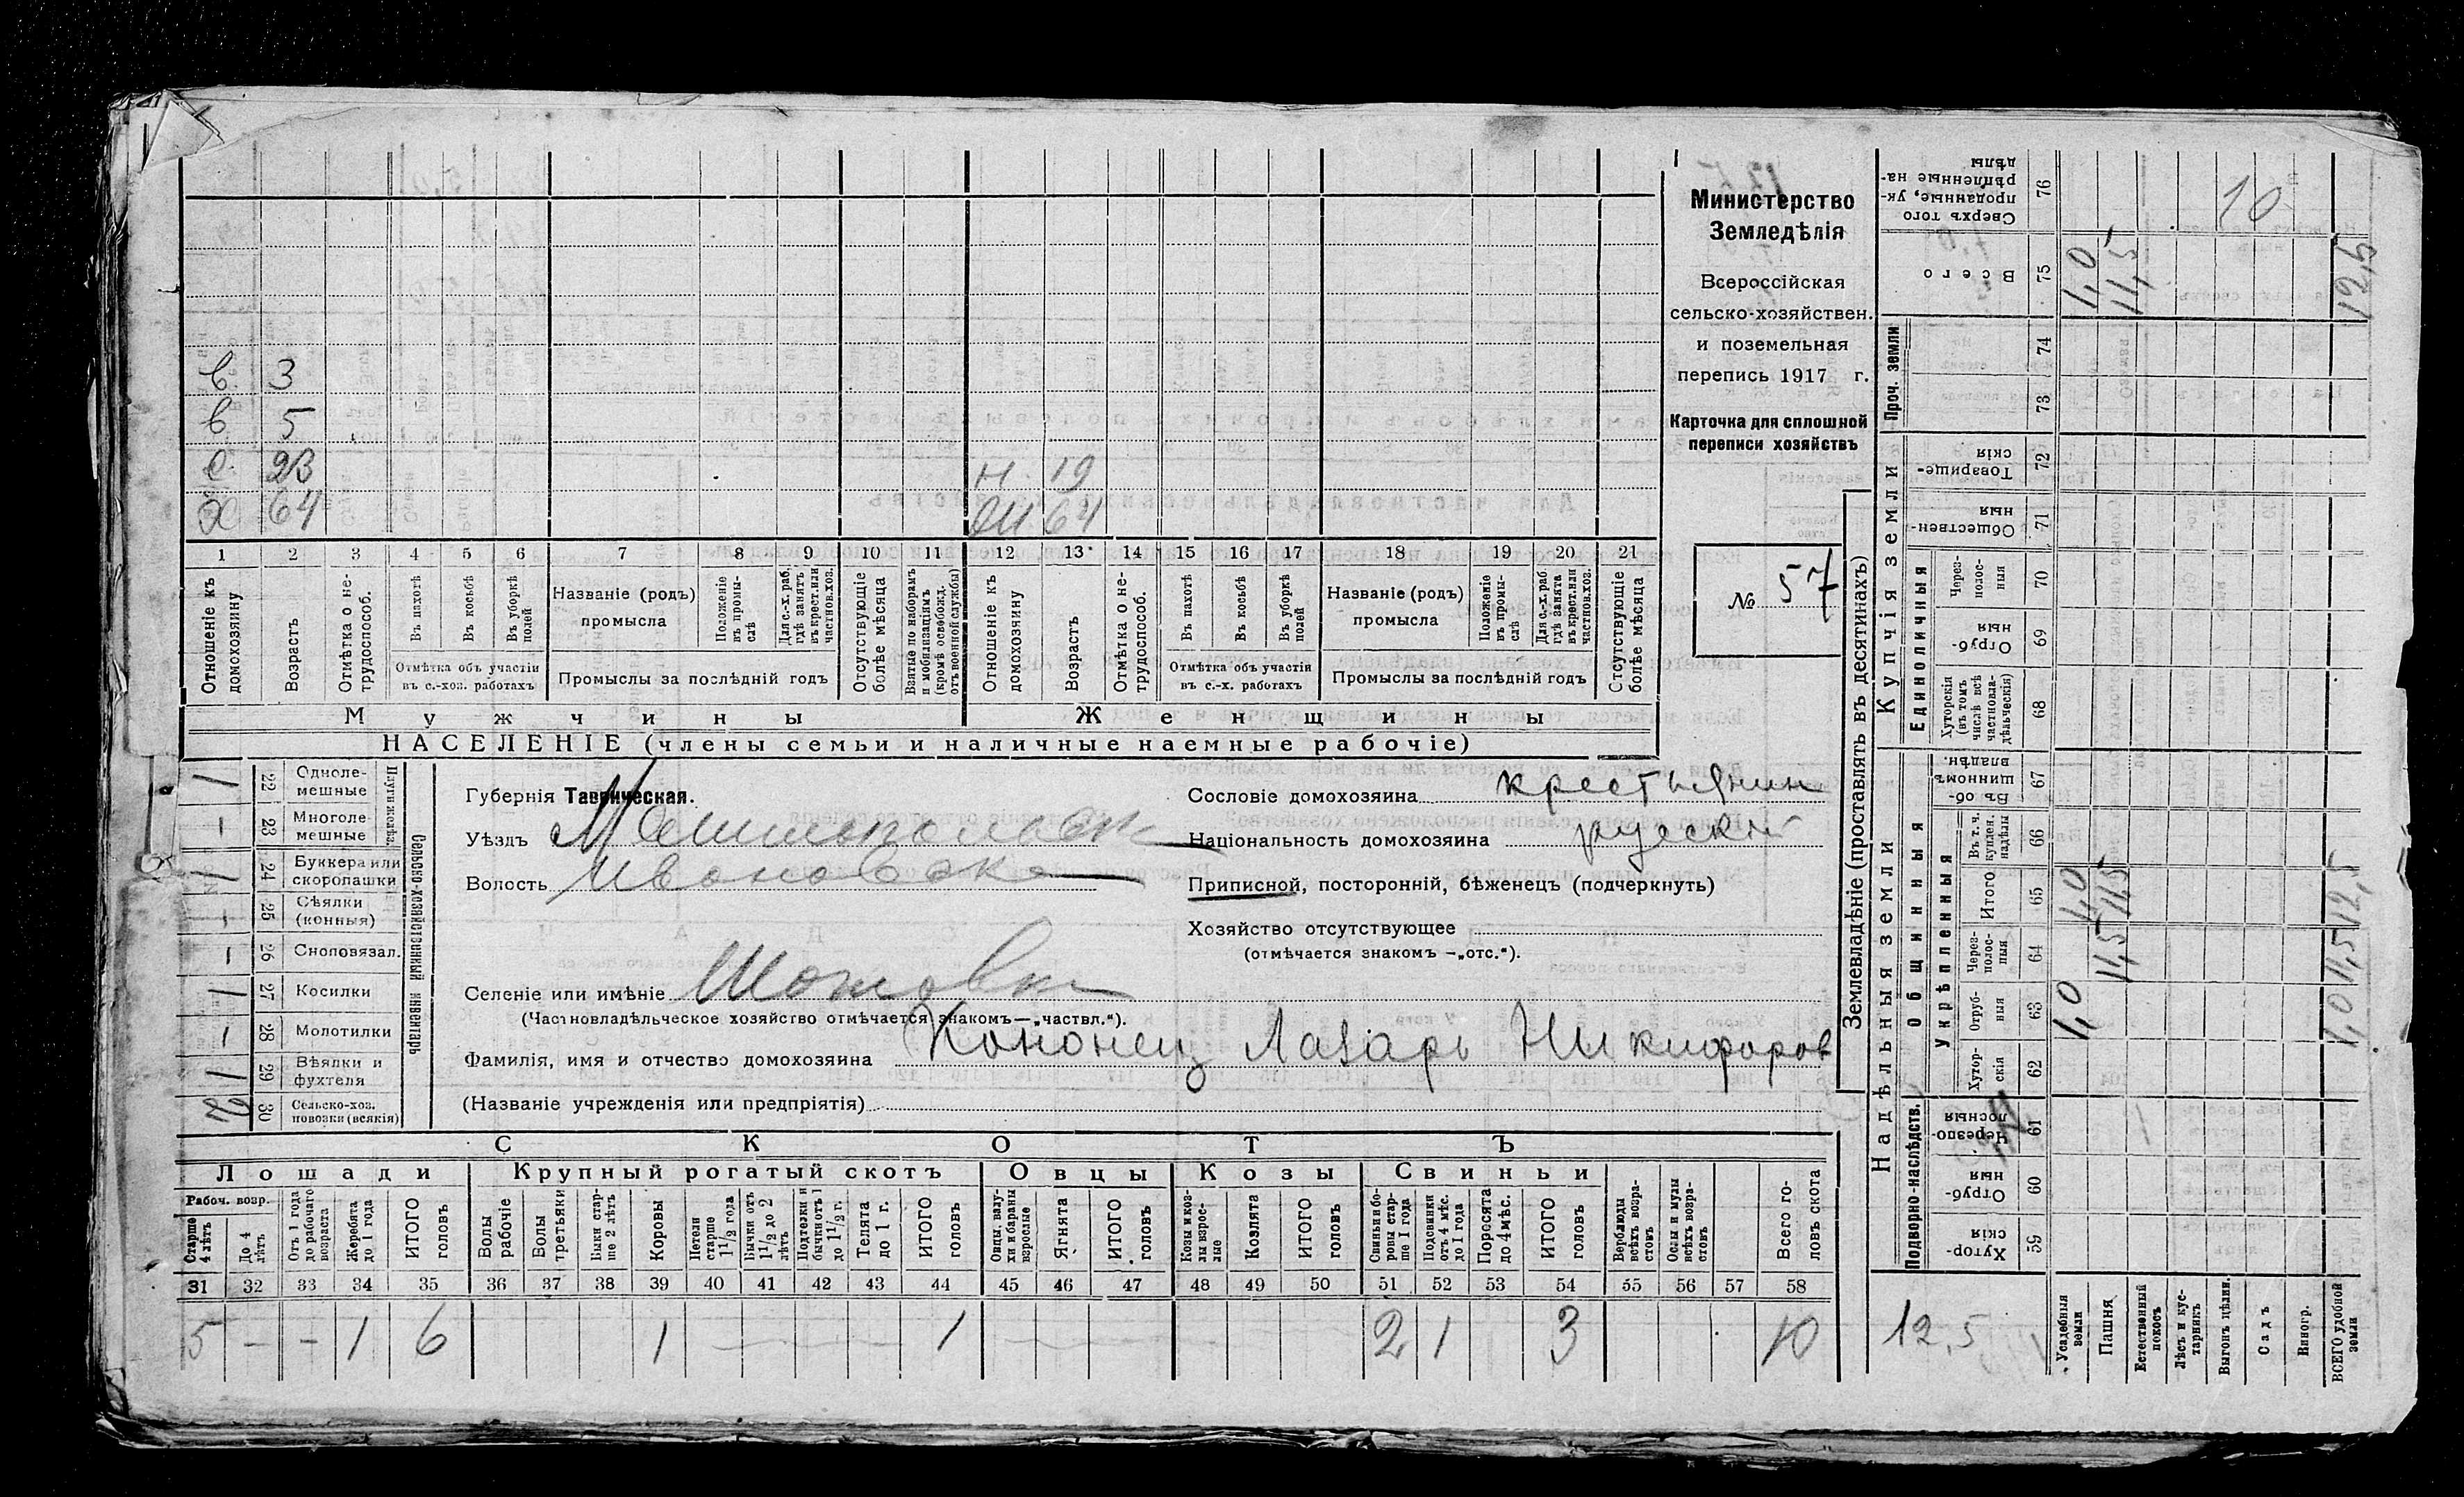 в. 3
в 5
с. 23 н. 19
х 64 64
1 2 3 4 5 6 7 8 9 10 11 12 13 14 15 16 17 18 19 20 21
Отношеніе къ домохозяину
Возрастъ
Отмѣтка о нетрудоспособ.
Въ пахотѣ
Въ косьбѣ
Въ уборкѣ полей
Отмѣтка объ участіи въ с.-хоз. работахъ
Названіе (родъ) промысла
Положеніе въ промыслѣ
Для с.-х. раб. гдѣ занятъ въ крест. или частнов. хоз.
Промыслы за послѣдній годъ
Отсутствующіе болѣе мѣсяца
Взятые по наборамъ и мобилизаціямъ (кромѣ освобожд. отъ военной службы)
Отношеніе къ домохозяину
Возрастъ
Отмѣтка о нетрудоспособ.
Въ пахотѣ
Въ косьбѣ
Въ уборкѣ полей
Отмѣтка объ участіи въ с.-х. работахъ
Названіе (родъ) промысла
Положеніе въ промыслѣ
Для с.-х. раб. гдѣ занята въ крест. или частнов. хоз.
Промыслы за послѣдній годъ
Отсутствующіе болѣе мѣсяца
Мужчины Женщины
НАСЕЛЕНІЕ (члены семьи и наличные наемные рабочіе)
Министерство
Земледѣлія
Всероссійская
сельско-хозяйствен.
и поземельная
перепись 1917 г.
Карточка для сплошной
переписи хозяйствъ
№ 57
Сельско-хозяйственный инвентарь
1 22 Одноле-мешные
— 23 Многоле-мешные
1 24 Буккера или скоропашки
— 25 Сѣялки (конныя)
— 26 Сноповязал.
1 27 Косилки
— 28 Молотилки
1 29 Вѣялки и фухтеля
30 Сельско-хоз. повозки (всякія)
Губернія Таврическая.
Уѣздъ Мелитопольск
Волость Ивановска
Селеніе или имѣніе
(Частновладѣльческое хозяйство отмѣчается знакомъ —„частвл.“).
Фамилія, имя и отчество домохозяина Кононец Лазарь Никифоров
(Названіе учрежденія или предпріятія)
Сословіе домохозяина крестьянин
Національность домохозяина русскій
Приписной, посторонній, бѣженецъ (подчеркнуть)
Хозяйство отсутствующее
(отмѣчается знакомъ —„отс.“).
СКОТЪ
Лошади Крупный рогатый скотъ Овцы Козы Свиньи
Рабоч. возр.
Старше 4 лѣтъ
До 4 лѣтъ
Отъ 1 года до рабочаго возраста
Жеребята до 1 года
ИТОГО головъ
Волы рабочіе
Волы третьяки
Быки старше 2 лѣтъ
Коровы
Нетели старше 1 1/2 года
Бычки отъ 1 1/2 до 2 лѣтъ
Подтелки и бычки отъ 1 до 1 1/2 г.
Телята до 1 г.
ИТОГО головъ
Овцы, валухи и бараны взрослые
Ягнята
ИТОГО головъ
Козы и козлы взрослые
Козлята
ИТОГО головъ
Свиньи и боровы старше 1 года
Подсвинки отъ 4 мѣс. до 1 года
Поросята до 4 мѣс.
ИТОГО головъ
Верблюды всѣхъ возрастовъ
Ослы и мулы всѣхъ возрастовъ
Всего головъ скота
31 32 33 34 35 36 37 38 39 40 41 42 43 44 45 46 47 48 49 50 51 52 53 54 55 56 57 58
5 — — 1 6 1 1 2 1 3 10
Землевладѣніе (проставлять въ десятинахъ)
Сверхъ того проданные, укрѣпленные надѣлы 76 10
Всего 75 1,0 11,5 12,5
Проч. земли
74
73
Купчія земли
Товарищескія 72
Общественныя 71
Единоличныя
Черезполосныя 70
Отрубныя 69
Хуторскія (въ томъ числѣ всѣ частновладѣльческія) 68
Надѣльныя земли
Общинныя
Въ общинномъ владѣн. 67
Укрѣпленныя
Въ т. ч. куплен. надѣлы 66
Итого 65 1,0 11,5 12,5
Черезполосныя 64 11,5 11,5
Отрубныя 63 1,0 1,0
Хуторскія 62
Подворно-наслѣдств.
Черезполосныя 61
Отрубныя 60
Хуторскія 59
12,5
Усадебныя земли
Пашня
Естественный покосъ
Лѣсъ и кустарникъ
Выгонъ цѣлин.
Садъ
Виногр.
ВСЕГО удобной земли